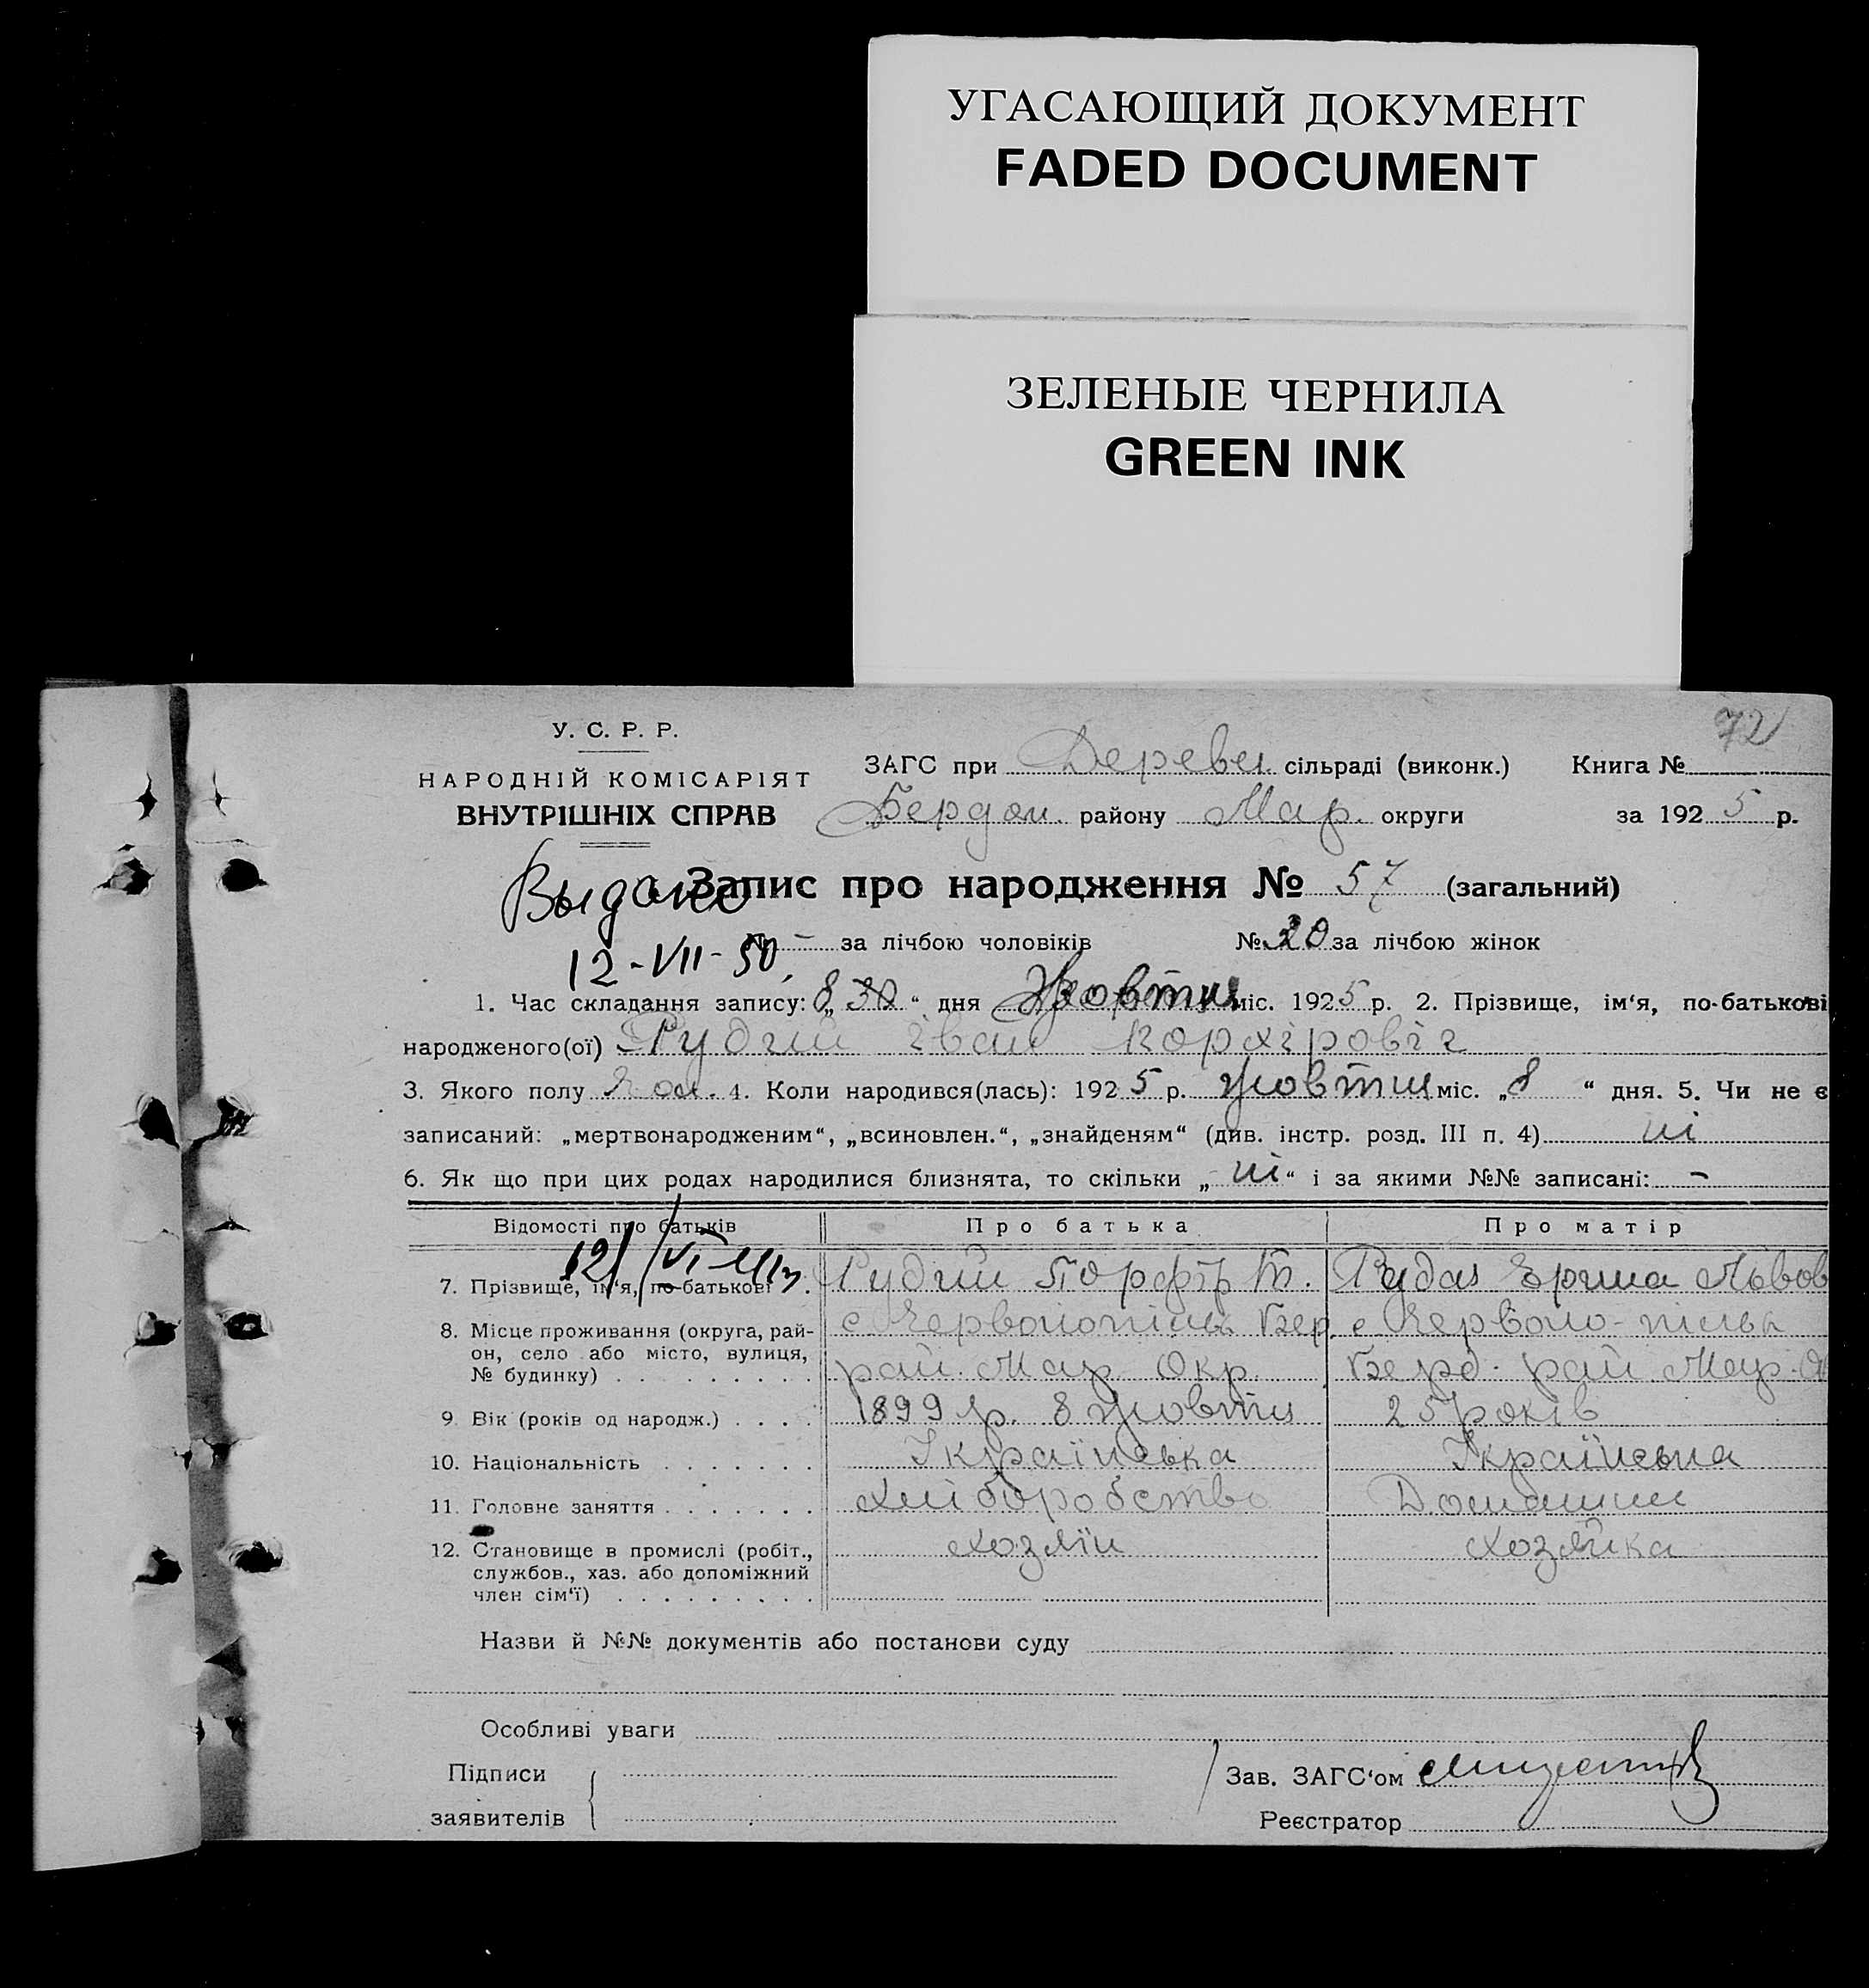 УГАСАЮЩИЙ ДОКУМЕНТ
FADED DOCUMENT
ЗЕЛЕНЫЕ ЧЕРНИЛА
GREEN INK
72
У. С. Р. Р.
НАРОДНІЙ КОМІСАРІЯТ
ВНУТРІШНІХ СПРАВ
ЗАГС при Деревец. сільраді (виконк.) Книга №
Бердян. району Мар. округи за 1925 р.
Выдано
Запис про народження № 57 (загальний)
№ - за лічбою чоловіків № 20 за лічбою жінок
12-VII-50
1. Час складання запису: „ 30 “ дня Жовтня міс. 1925 р. 2. Прізвище, ім‘я, по-батькові
народженого(ої) Рудий Іван
3. Якого полу 4. Коли народився(лась): 1925 р. жовтня міс. „8 “ дня. 5. Чи не є
записаний: „мертвонародженим“, „всиновлен.“, „знайденям“ (див. інстр. розд. III п. 4) ні
6. Як що при цих родах народилися близнята, то скільки „ ні “ і за якими №№ записані: -
Відомості про батьків Про батька Про матір
7. Прізвище, ім‘я, по-батькові . Рудий Порфір Рудая Львов
8. Місце проживання (округа, рай-
он, село або місто, вулиця,
№ будинку) . . . . . . . . .
с Червонопілля Бер.
рай. Мар. Окр.
с Червоно-пілля
Берд. рай. Мар.
9. Вік (років од народж.) . . . . 1899 р. 8 жовтн 25 років
10. Національність . . . . . . . Українська Українська
11. Головне заняття . . . . . . . Хліборобство Домашнє
12. Становище в промислі (робіт.,
службов., хаз. або допоміжний
член сім‘ї) . . . . . . . . .
хозяїн хозяйка
Назви й №№ документів або постанови суду
Особливі уваги
Підписи
заявителів
Зав. ЗАГС‘ом
Реєстратор